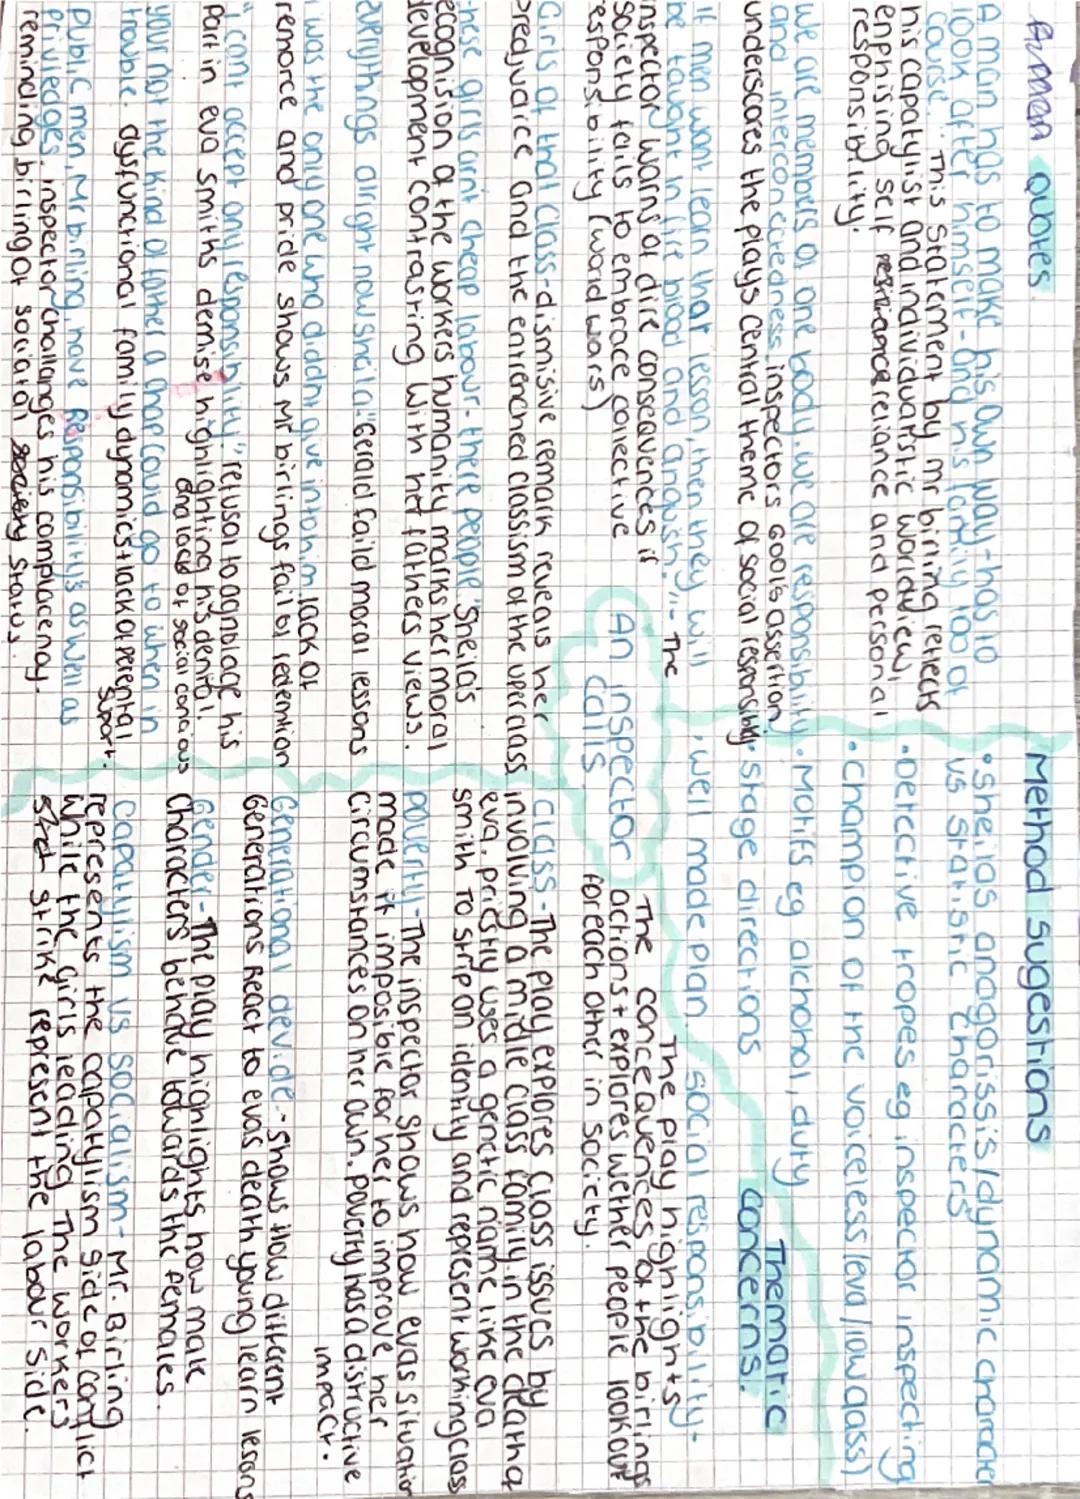 Quotes
A man has to make his own way-has to
look after himself-and his family too of
course." This Statement by mr birling reflects
his capatylist and individualistic worldview,
enphisising self reliance and personal
responsibility.
we are members of one body. we are responsibility
and interconectedness, inspectors Gool's assertion
underscores the plays central theme of social responsibly.
If men wont learn that lesson, then they will
be taught in fire blood and anguish"... The
inspector warns of dire conseqvences if
society fails to embrace collective
responsibility (world wars)
Girls of that class-dismisive remark reveals her
predjuaice and the entrenched classism of the uper class
these girls ain't cheap labour-there people." Sheila's
recognision of the workers humanity marks her moral
development contrasting with her fathers views.
everythings alright now sheila." Gerald faild moral lessons
i was the only one who didn't give into him. lack of
remorce and pride shows Mr birlings fail of redemtion
"i cant accept any responsibility." refusal to agnolage his
part in eva smiths demise highlighting his denial.
and lack of social concious
your not the kind of father a chap could go to when in
trouble. dysfunctional family dynamics+lack of perental
suport.
public men, Mr birling, have responsibilitys as well as
privledges. inspector challanges his complacemay.
reminding birling of sociatal status.
An inspector
calls
Method suggestions
• Sheilas anagorissis/dynamic character
vs statistic characters
• Detective tropes eg inspector inspecting
• Champion of the voiceless (eva/low class)
• Motifs eg alchohol, duty
• Stage directions
, well made plan.
Thematic
concerns.
social responsibility-
The play highlights
The conceqvences of the birlings
actions + explores wether people lookout
for each other in society.
Class-The play explores class issues by
involving a midle class family in the death of
eva. pristly uses a genetic name like eva
smith to strip an identity and represent working class
poverty-The inspector shows how evas situation
made it imposible for her to improve her
circumstances on her own. poverty has a distructive
impact.
Generational devide-shows How different
Generations React to evas death young learn lesons
Gender-The play highlights how male
characters behave towards the females.
Capatylism vs socialism-Mr. Birling
represents the capatylism side of conflict
while the girls leading The workers
strike represent the labour side.